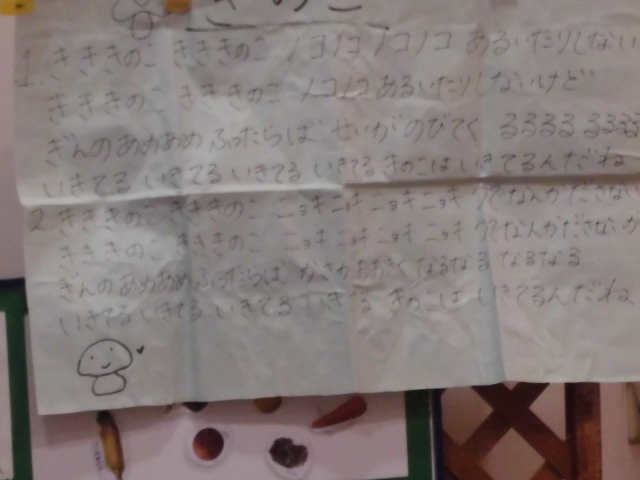 きのこ
1. きききのこ きききのこ ノコノコ ノコノコ あるいたりしない
きききのこ きききのこ ノコノコ あるいたりしないけど
ぎんのあめあめふったらば せいがのびてく るるるる るるるる
いきてる いきてる いきてる いきてる きのこは いきてるんだね
2 きききのこ きききのこ ニョキニョキ ニョキ ニョキ うでなんかださない
きききのこ きききのこ ニョキ ニョキ ニョキ ニョキ うでなんかださないが
ぎんのあめあめふったらば かさがおおきく なるなる なるなる
いきてる いきてる いきてる いき る きのこは いきてるんだね